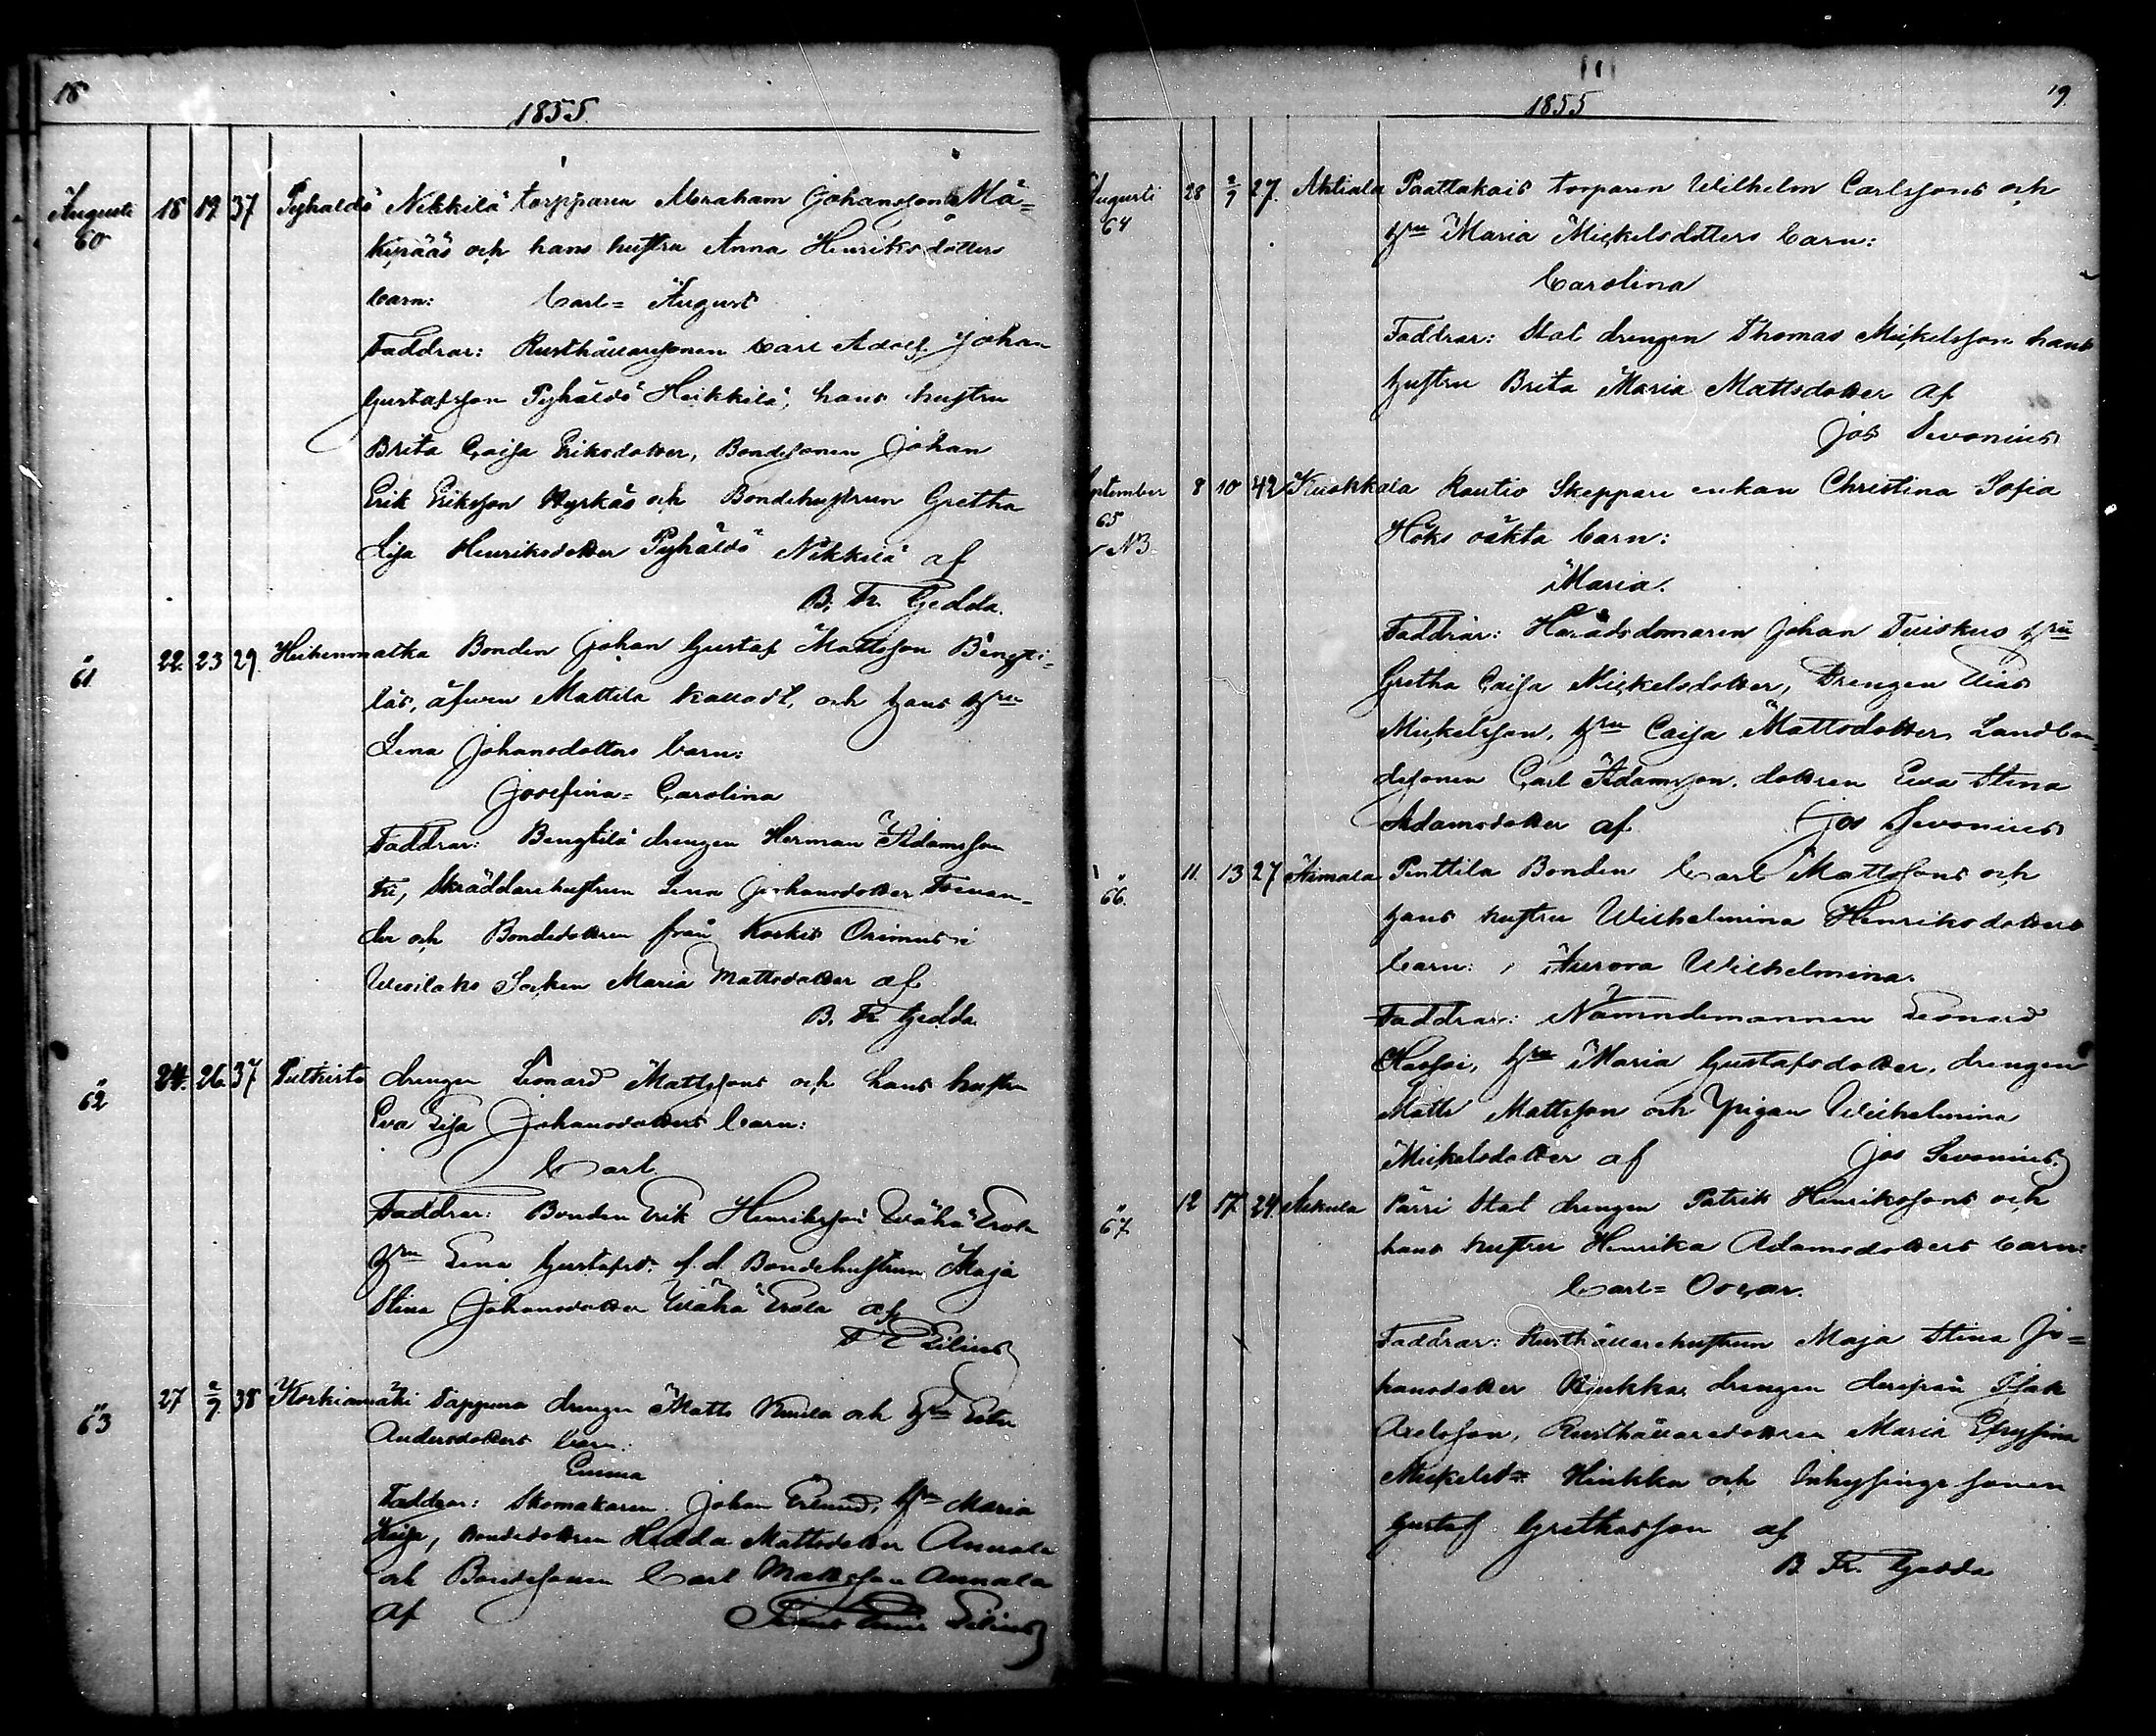 18
1855.
Augusti 18 19 37 Pyhäldö Nikkilä torpparen Abraham Johansson Mä=
60
kipääs och hans hustru Anna Henriksdotters
barn: Carl= August
Faddrar: Rusthållaresonen Carl Adolf Johan
Gustafsson Pyhäldö Heikkilä, hans hustru
Brita Caisa Eriksdotter, Bondesonen Johan
Erik Eriksson Hyrkäs och Bondehustrun Gretha
Lisa Henriksdotter Pyhäldö Nikkilä af
B. Fr. Gedda.
" 61 22 23 29. Heikenmatka Bonden Johan Gustaf Mattsson Bengti=
läs, äfwen Mattila kallad, och hans h:ru
Lena Johansdotters barn:
Josefina= Carolina
Faddrar: Bengtilä drengen Herman Adamsson
Skräddarehustrun Lena Johansdotter
der och Bondedottren från Korkis Onimus i
Wesilaks Socken Maria Mattsdotter af
B. Fr. Gedda
" 62 24. 26 37 Pulkisto drengen Leonard Mattssons och hans hustru
Eva Lisa Johansdotters barn:
Carl.
Faddrar: Bonden Erik Henriksson Wähä Erola
h:ru Lena Gustafsd. f. d. Bondehustrun Maja
Stina Johansdotter Wähä Erola af
F E Lilius
" 63 27 2/9 38 Korkiamäki Tappuna drengen Matts och h:ru
Andersdotters barn:
Emma
Faddrar: Skomakaren Johan h:ru Maria
Kaisa, Bondedottren Hedda Mattsdotter Annala
och Bondesonen Carl Mattsson Annala
af Frans Lilius
1855
19.
Augusti 28 2/9 27. Ahtiala Paattakais torparen Wilhelm Carlssons och
64
h:ru Maria Mickelsdotters barn:
Carolina
Faddrar: Stat drengen Thomas Mickelsson hans
hustru Brita Maria Mattsdotter af
Jos Sevonius
September 8 10 42 Kuokkala Rautio Skeppare enkan Christina Sofia
65
NB Höks oäkta barn:
Maria.
Faddrar: Häradsdomaren Johan Tuiskus h:ru
Gretha Caisa Mickelsdotter, Drengen Elias
Mickelsson, h:ru Caisa Mattsdotter Landbon=
desonen Carl Adamsson. dottren Eva Stina
Adamsdotter af Jos Sevonius
" 66. 11. 13 27 Aimala Penttila Bonden Carl Mattssons och
hans hustru Wilhelmina Henriksdotters
barn: Aurora Wilhelmina.
Faddrar: Nämndemannen Leonard
Hassoi, h:ru Maria Gustafsdotter, drengen
Matts Mattsson och Pigan Wilhelmina
Mickelsdotter af Jos Sevonius
" 67 12 17 24. Mekula Pärri Stat drengen Patrik Henrikssons och
hans hustru Henrika Adamsdotters barn:
Carl= Oscar.
Faddrar: Rusthållarehustrun Maja Stina Jo=
hansdotter Hinkka, drengen derifrån Isak
Axelsson, Rusthållaredottren Maria Efrysina
Mickelsd:r Hinkka och Inhysinge sonen
Gustaf Grethasson af
B. Fr. Gedda